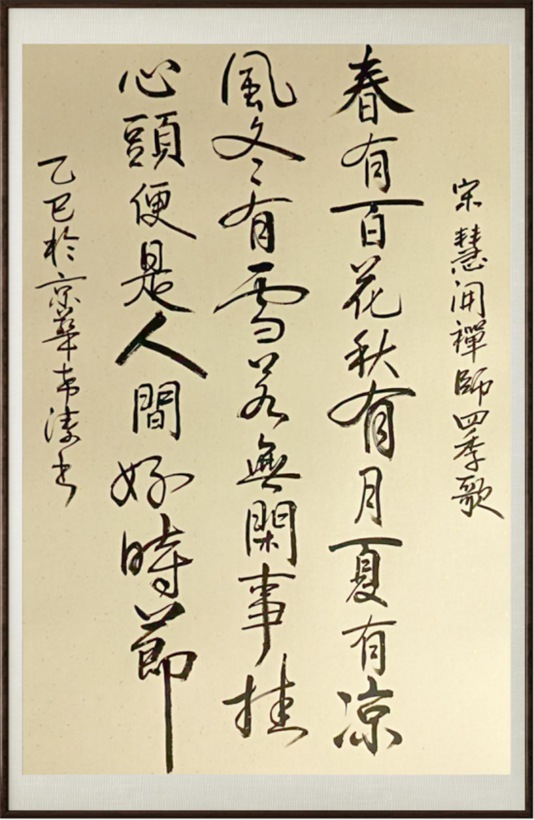 宋慧開禪師四季歌
春有百花秋有月夏有涼
風冬〻有雪若無閑事挂
心頭便是人間好時節
乙巳於京華韦涛书